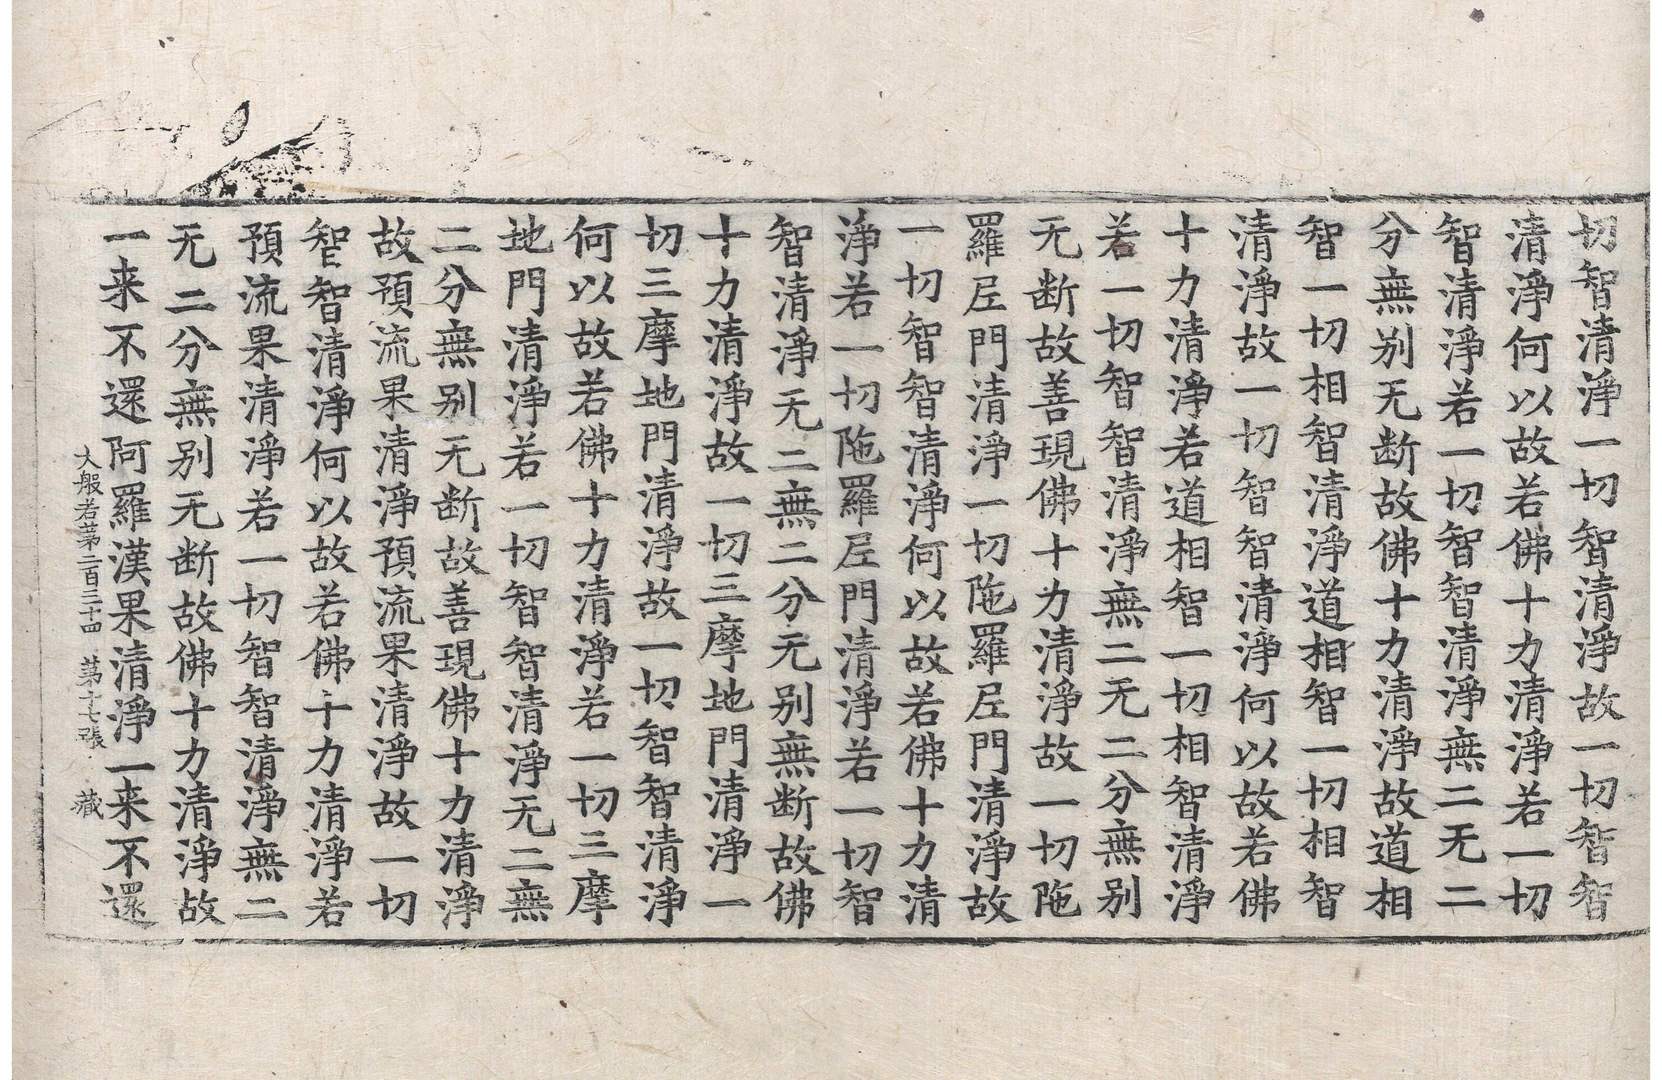 切智清淨一切智清淨故一切智智
清淨何以故若佛十力清淨若一切
智清淨若一切智智清淨無二无二
分無別无断故佛十力清淨故道相
智一切相智清淨道相智一切相智
清淨故一切智智清淨何以故若佛
十力清淨若道相智一切相智清淨
若一切智智清淨無二无二分無別
无断故善現佛十力清淨故一切陁
羅尼門清淨一切陁羅尼門清淨故
一切智智清淨何以故若佛十力清
淨若一切陁羅尼門清淨若一切智
智清淨无二無二分无別無断故佛
十力清淨故一切三摩地門清淨一
切三摩地門清淨故一切智智清淨
何以故若佛十力清淨若一切三摩
地門清淨若一切智智清淨无二無
二分無別无断故善現佛十力清淨
故預流果清淨預流果清淨故一切
智智清淨何以故若佛十力清淨若
預流果清淨若一切智智清淨無二
无二分無別无断故佛十力清淨故
一来不還阿羅漢果清淨一来不還
大般若第二百三十四 第十七張 藏